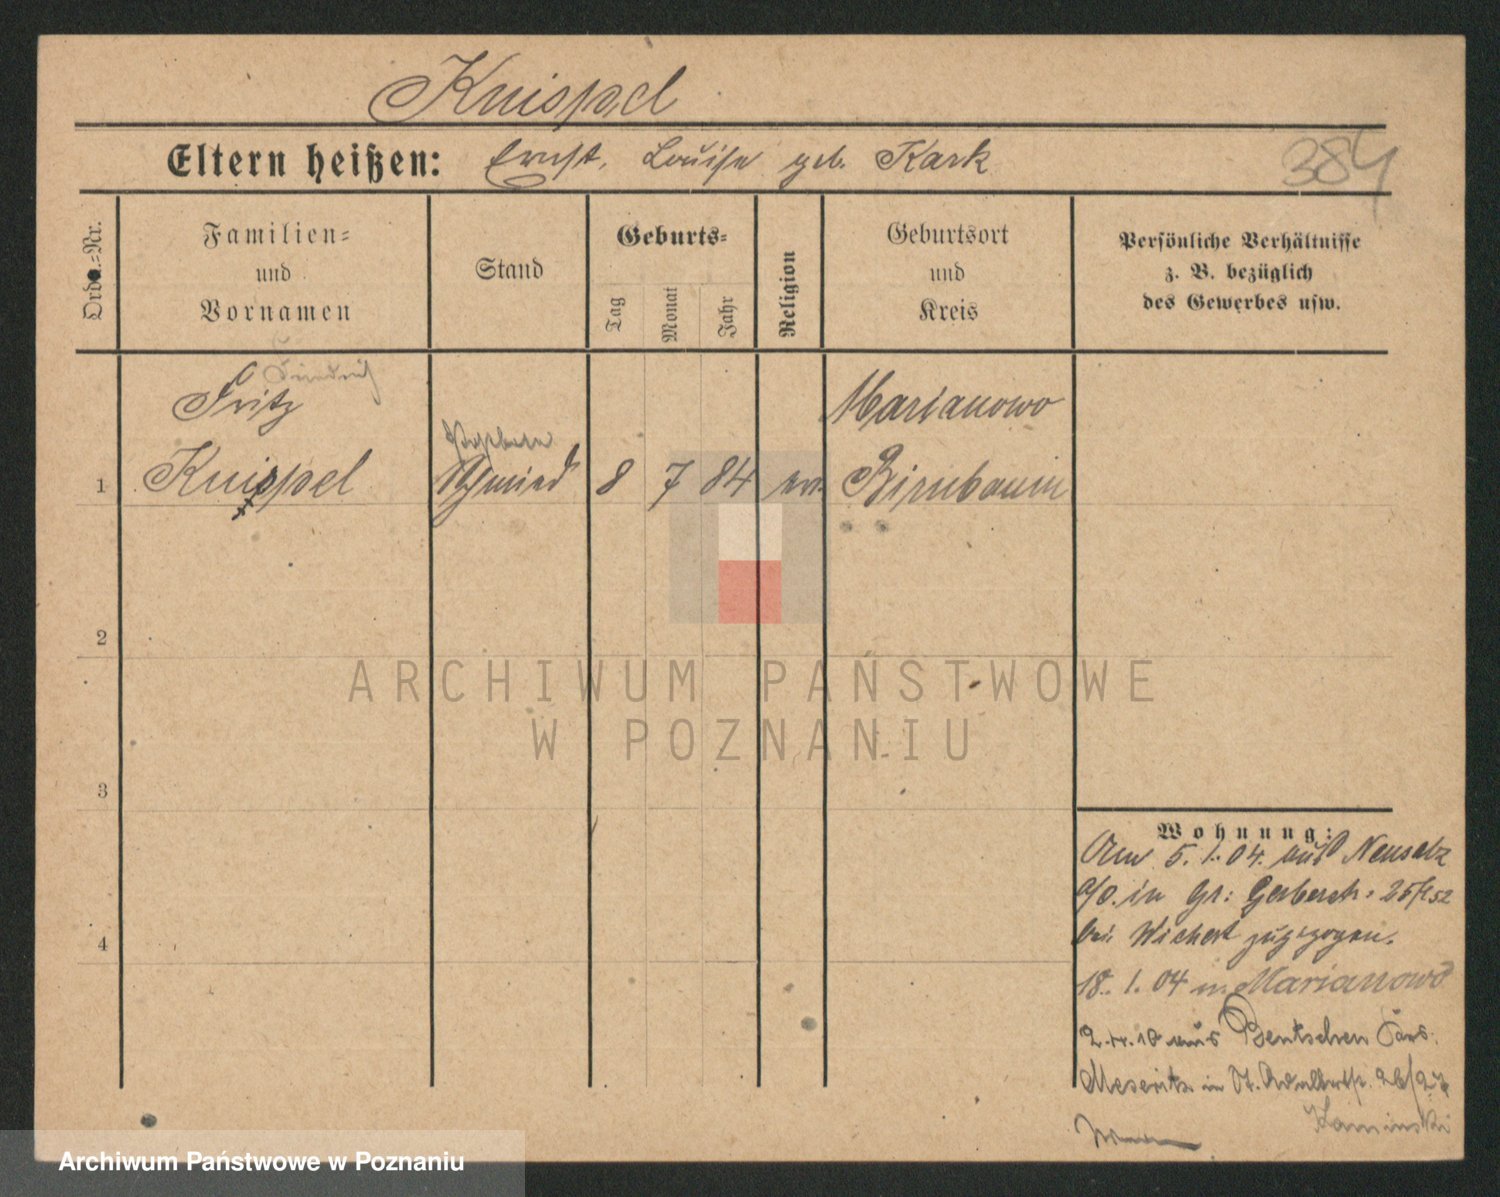 Knispel
Eltern heißen: Ernst, Louise geb. Kark
384
Ordn.-Nr.
Familien-
und
Vornamen
Stand
Geburts-
Tag
Monat
Jahr
Religion
Geburtsort
und
Kreis
Persönliche Verhältnisse
z. B. bezüglich
des Gewerbes usw.
Friedrich
Fritz
Marianowo
1 Knispel Schmied 8 7 84 ev. Birnbaum
2
3
4
Wohnung:
Am 5. 1. 04. aus Neusalz
a/O. in Gr: Gerberstr. 25
bei Wichert zugezogen.
18. 1. 04 n. Marianowo
2.4.10 aus Bentschen Krs.
Meseritz in St. Adalbertst. 26/27
Kaminski
ARCHIWUM PAŃSTWOWE
W POZNANIU
Archiwum Państwowe w Poznaniu